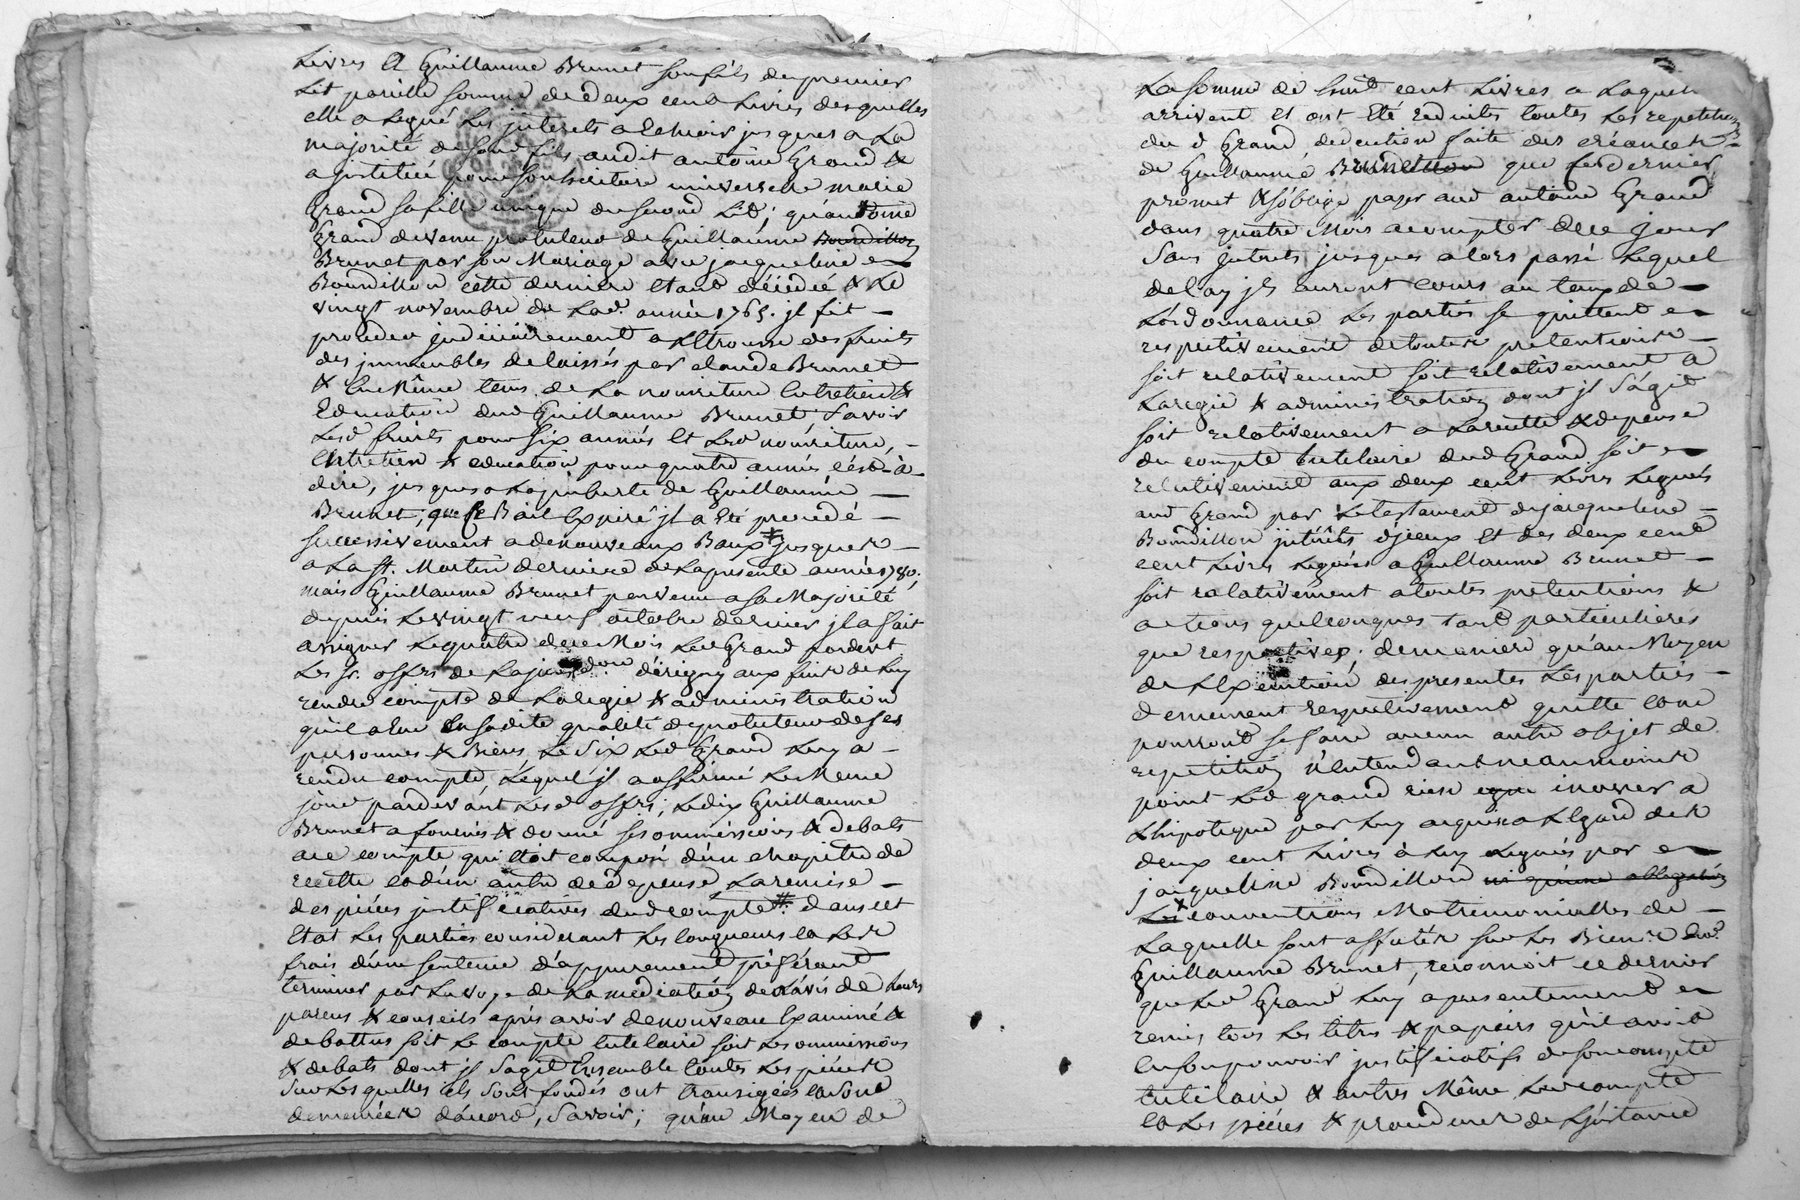 Livres et Guillaume Brunet son fils du premier
Lit pareille somme de deux cens Livres desquelles
elle a Legué Les jnterets a Echeoir jusques a La
majorité de sond fils audit antoine Grand &
a jnstitué pour son heritiere universelle marie
Grand sa fille unique du second Lit; qu'antoine
Grand devenu protuteur de Guillaume Bourdillon
Brunet par son Mariage avec jacqueline
Bourdillon cette derniere etant décédée & Le
vingt novembre de Lad. année 1765. jl fit
proceder judiciairement a L'Etrousse des fruits
des jmmeubles delaissés par claude Brunet
& En Même tems de La nourriture Entretien &
Education dud Guillaume Brunet Savoir
Lesd fruits pour six années et Lad nourriture,
Entretien & education pour quatre années c'est-à-
dire, jusques a La puberté de Guillaume
Brunet; que ce Bail Expiré jl a Eté procedé
successivement a de nouveaux Baux jusques
a La St. Martin derniere de La presente année 1780;
mais Guillaume Brunet parvenu a sa Majorité
depuis Le vingt neuf octobre dernier jl a fait
assigner Le quatre de ce Mois Led Grand pardevt
Les Srs. offrs de La jurisdon d'érigny aux fins de Luy
rendre compte de La regie & administration
qu'il a Eue En sadite qualité de protuteur de ses
personnes & Biens, Le Six Led Grand Luy a
rendu compte, Lequel jl a affirmé Le Meme
jour pardevant Lesd offrs; Le dix Guillaume
Brunet a fournis & donné ses ommissions & debats
a ce compte qui étoit composé d'un chapitre de
recette & d'un autre de depense, La remise
des pieces justificatives dud compte dans cet
Etat Les parties considerant Les longueurs & Les
frais d'une sentence d'appurement préférant
terminer par La voye de La mediation de L'avis de Leurs
parens & conseils après avoir de nouveau Examiné &
debattus soit Le compte tutelaire soit Les ommissions
& debats dont jl s'agit Ensemble toutes Les pieces
Sur Lesquelles ils sont fondés ont transigées & sont
demeurées d'acord, Savoir; qu'au Moyen de
La somme de huit cent Livres a Laquelle
arrivent et ont Eté reduites toutes Les repetitions
du d Grand, deduction faite des créances
de Guillaume Bourdillon que ce dernier
promet & s'oblige payer aud antoine Grand
dans quatre Mois a compter de ce jour
Sans jnterets jusques alors passé Lequel
delay jls auront cours au taux de
L'ordonnance Les parties se quittent
respectivement de toutes pretentions
soit relativement soit relativement a
La regie & administration dont jl s'agit
soit relativement a La recette & depense
du compte tutelaire dud Grand soit
relativement aux deux cent Livres Legués
aud Grand par Le testament de jacqueline
Bourdillon jnterêts d'jceux et des deux cent
cent Livres Leguées a Guillaume Brunet
soit relativement a toutes pretentions &
actions quelconques tant particulieres
que respectives; de maniere qu'au Moyen
de L'Execution des presentes Les parties
demeurent respectivement quittes & ne
pourront se faire aucun autre objet de
repetition n'Entendant neanmoins
point Led grand rien innover a
L'hipoteque par Luy acquise a L'Egard des
deux cent Livres à Luy Legués par
jacqueline Bourdillon
Les conventions Matrimonialles de
Laquelle sont affectés sur Les Biens dud.
Guillaume Brunet, reconnoit ce dernier
que Led Grand Luy a presentement
remis tous Les titres & papiers qu'il avoit
En son pouvoir justificatifs de son compte
tutelaire & autres Même Led compte
& Les pieces & procedures de L'jnstance